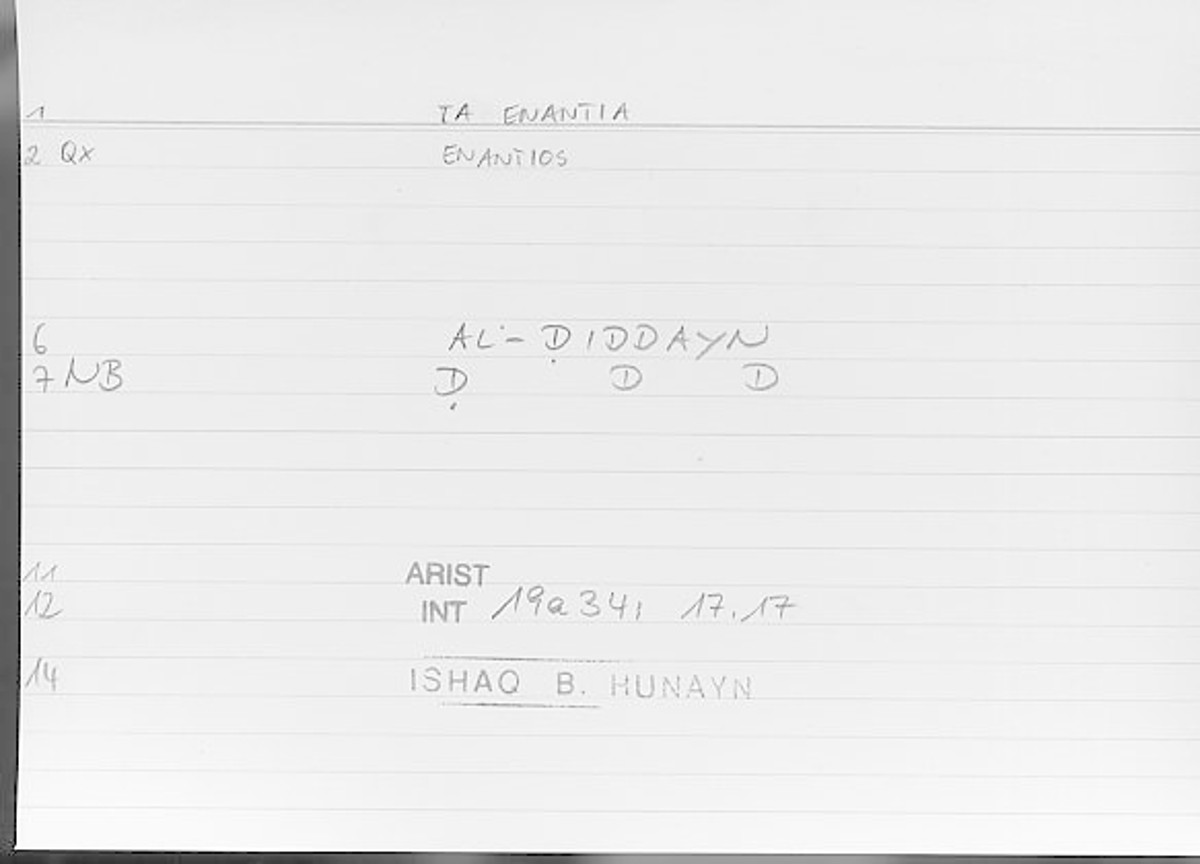 1 TA ENANTIA
2 QX ENANTIOS
6 AL-ḌIDDAYN
7 NB Ḍ D D
11 ARIST
12 INT 19a34; 17.17
14 ISHAQ B. HUNAYN